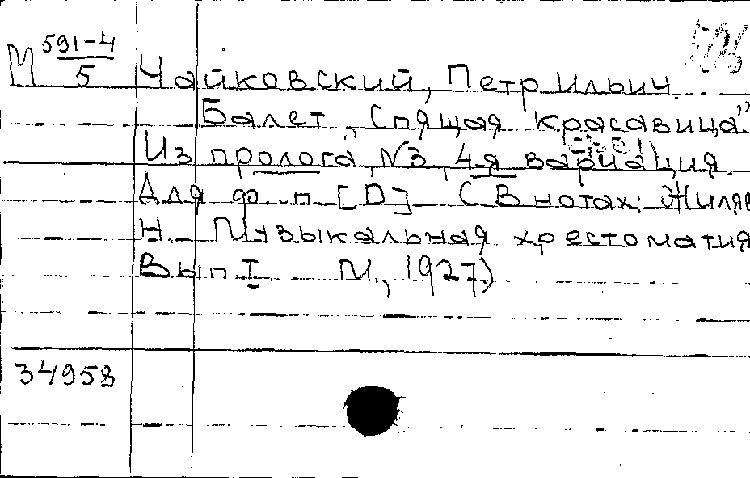 М 591-4/5 Чайковский, Петр Ильич.
Балет „Спящая красавица”
Из пролога, №3, 4-я вариация.
Для ф. п. [D] (В нотах: Жиляев
Н. Музыкальная хрестоматия
Вып I М., 1927)
34958